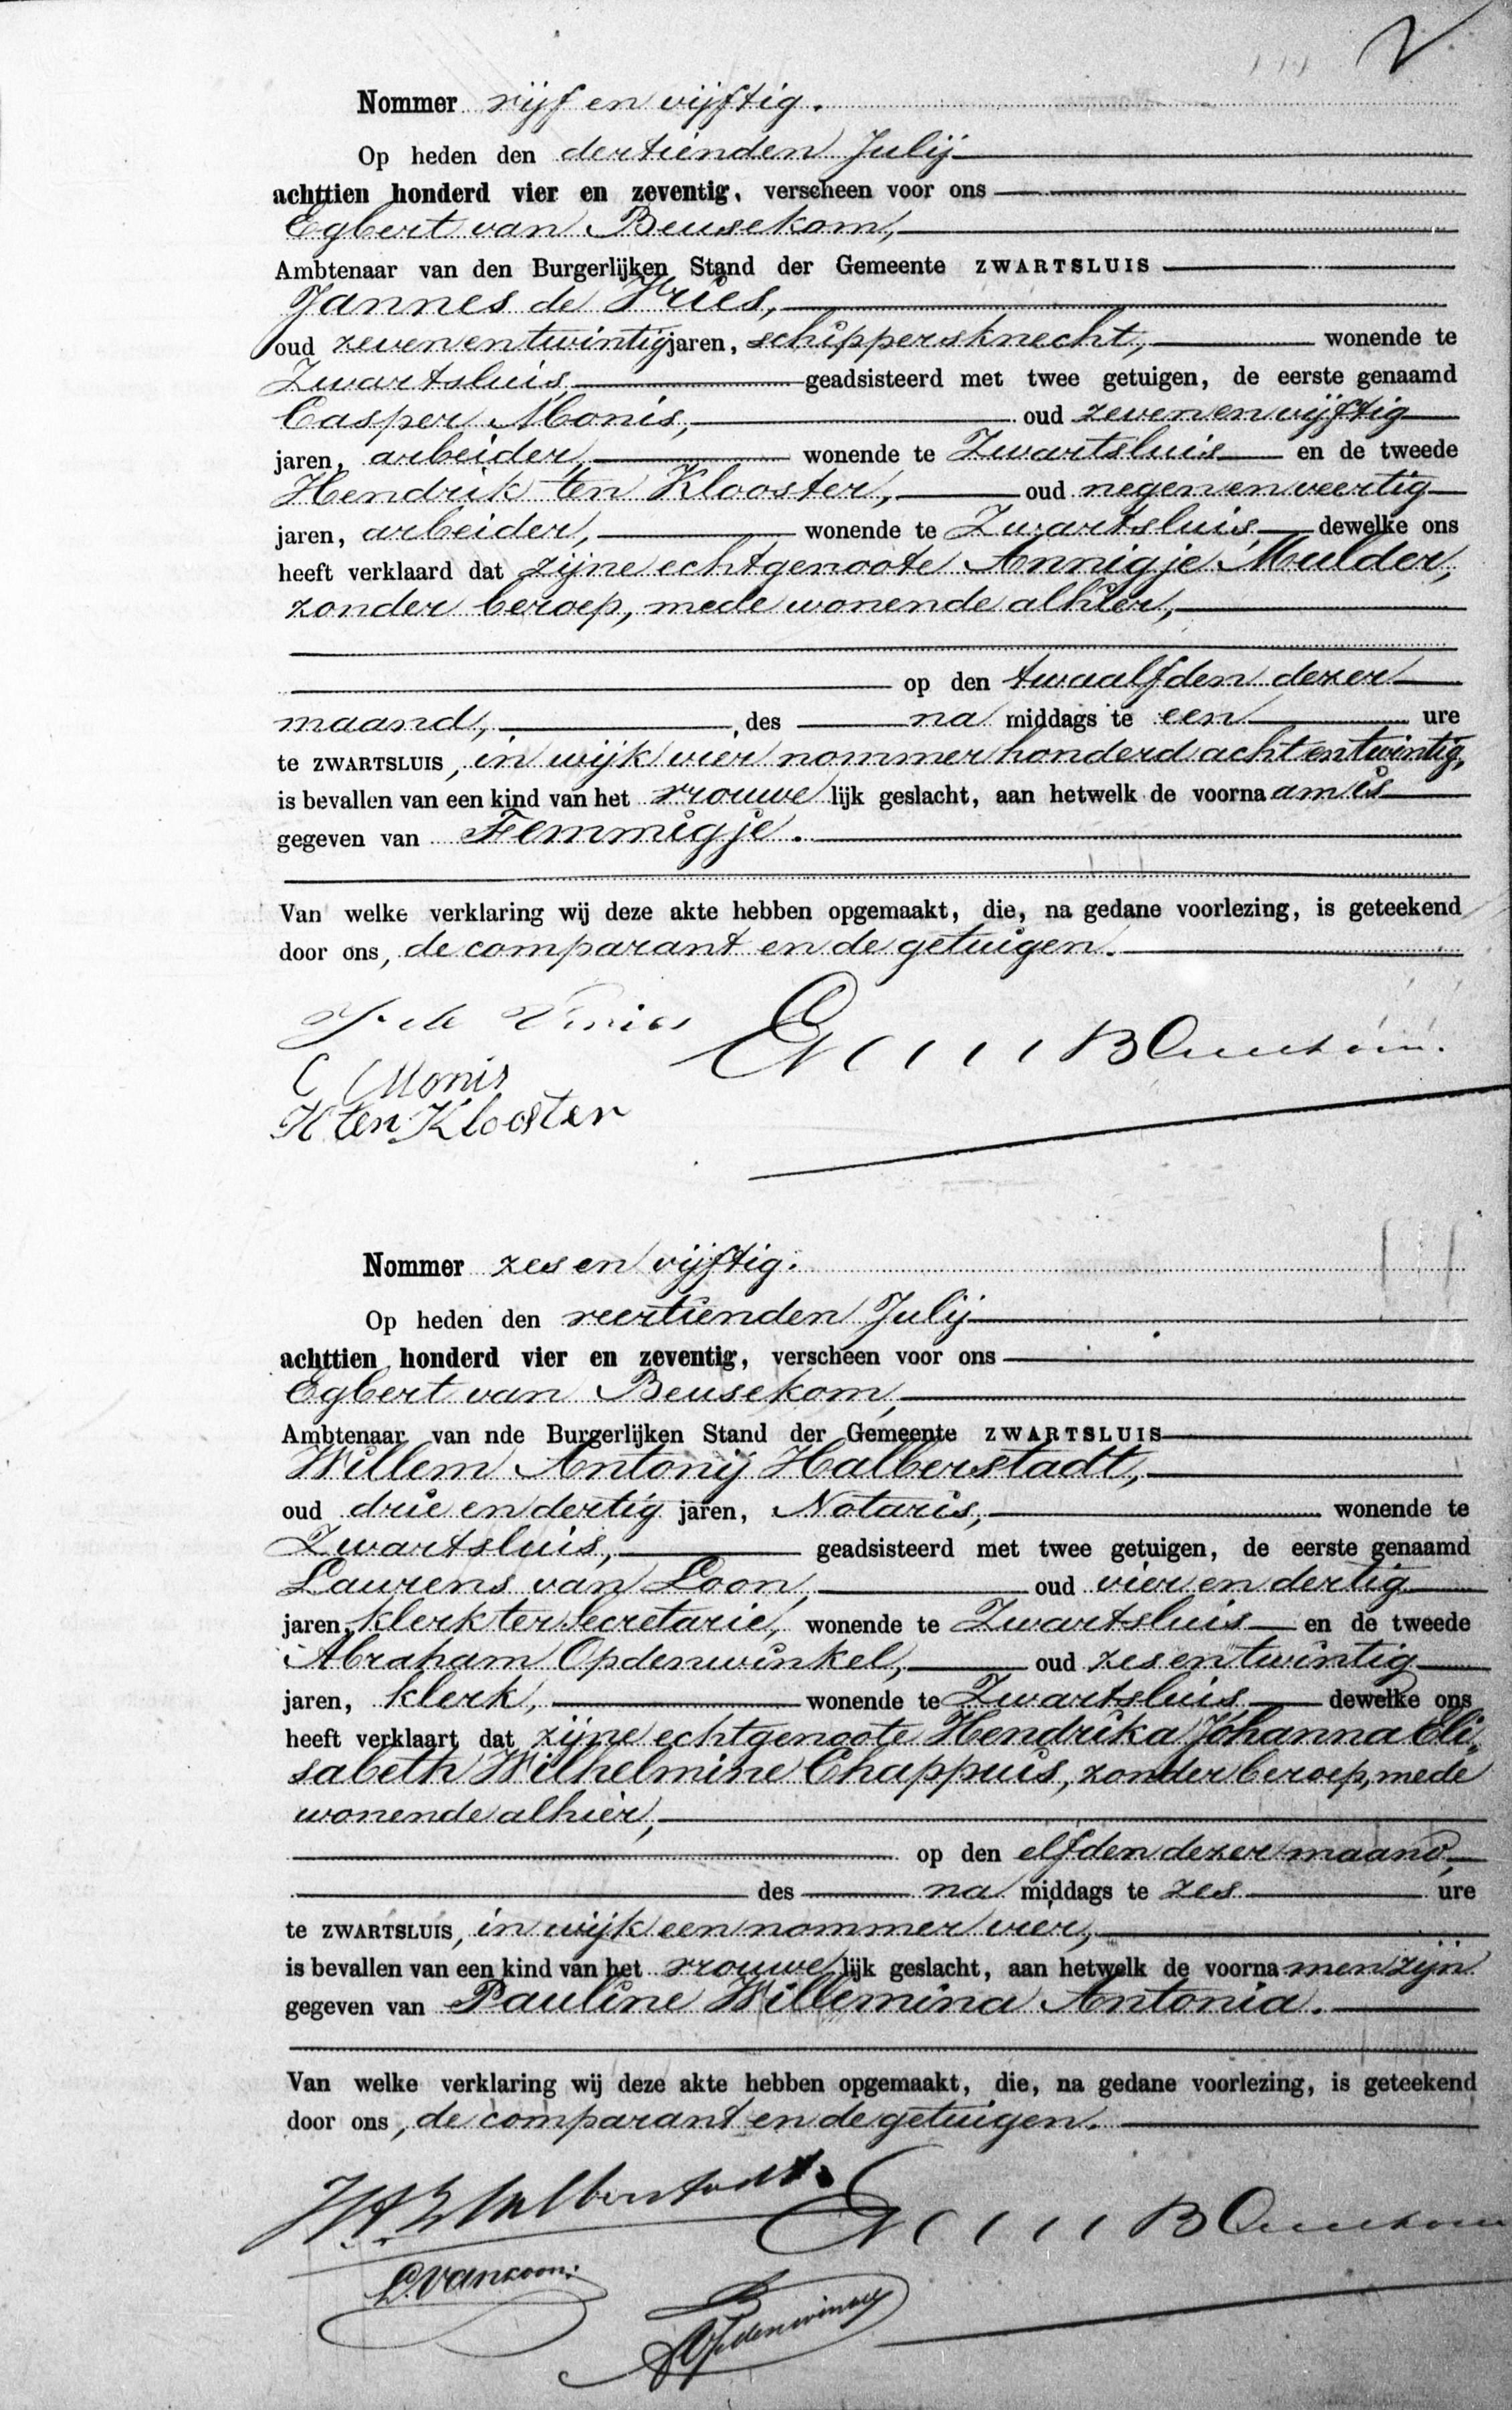 Nommer vijf en vijftig.
Op heden den dertienden Julij
achttien honderd vier en zeventig, verscheen voor ons
Egbert van Beusekom,
Ambtenaar van den Burgerlijken Stand der Gemeente ZWARTSLUIS
Jannes de Vries,
oud zeven en twintig jaren, schippersknecht, wonende te
Zwartsluis, geadsisteerd met twee getuigen, de eerste genaamd
Casper Monis, oud zeven en vijftig
jaren, arbeider, wonende te Zwartsluis en de tweede
Hendrik ten Klooster, oud negen en veertig
jaren, arbeider, wonende te Zwartsluis, dewelke ons
heeft verklaard dat zijne echtgenoote Annigje Mulder,
zonder beroep, mede wonende alhier,
op den twaalfden dezer
maand, des na middags te een ure
te ZWARTSLUIS, in wijk vier nommer honderd acht en twintig,
is bevallen van een kind van het vrouwe lijk geslacht, aan hetwelk de voorna am is
gegeven van Femmigje.
Van welke verklaring wij deze akte hebben opgemaakt, die, na gedane voorlezing, is geteekend
door ons, de comparant en de getuigen.
J. de Vries
C Monis
H ten Klooster
Nommer zes en vijftig.
Op heden den veertienden Julij
achttien honderd vier en zeventig, verscheen voor ons
Egbert van Beusekom,
Ambtenaar van nde Burgerlijken Stand der Gemeente ZWARTSLUIS
Willem Antonij Halberstadt,
oud drie en dertig jaren, Notaris, wonende te
Zwartsluis, geadsisteerd met twee getuigen, de eerste genaamd
Laurens van Loon, oud vier en dertig
jaren, klerk ter Secretarie, wonende te Zwartsluis en de tweede
Abraham Opdenwinkel, oud zes en twintig
jaren, klerk, wonende te Zwartsluis, dewelke ons
heeft verklaart dat zijne echtgenoote Hendrika Johanna Eli„
sabeth Wilhelmine Chappuis, zonder beroep, mede
wonende alhier,
op den elfden dezer maand,
des na middags te zes ure
te ZWARTSLUIS, in wijk een nommer vier,
is bevallen van een kind van het vrouwe lijk geslacht, aan hetwelk de voorna men zijn
gegeven van Pauline Willemina Antonia.
Van welke verklaring wij deze akte hebben opgemaakt, die, na gedane voorlezing, is geteekend
door ons, de comparant en de getuigen.
WA Halberstadt.
L. van Loon.
AOpdenwinkel